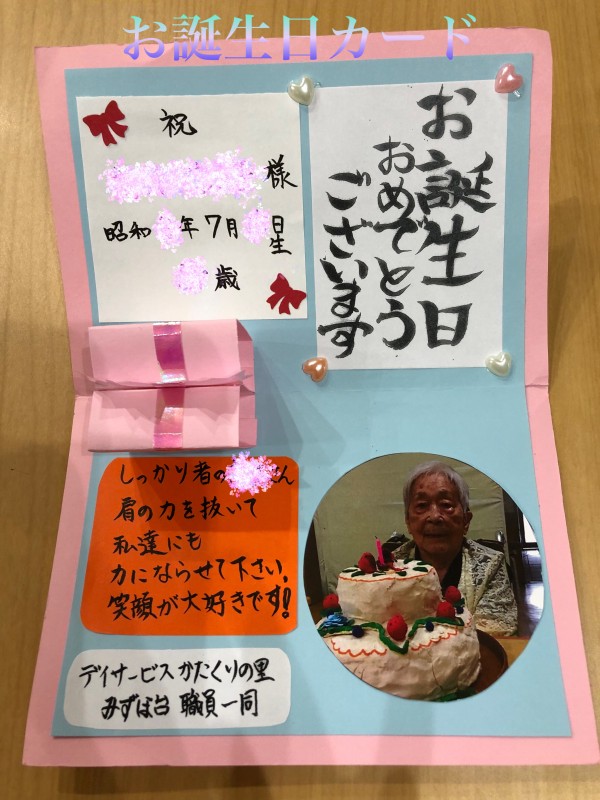 お誕生日カード
お誕生日
おめでとう
ございます
祝
様
昭和 年7月 日生
歳
しっかり者の ん
肩の力を抜いて
私達にも
力にならせて下さい。
笑顔が大好きです!
デイサービスかたくりの里
みずほ台 職員一同